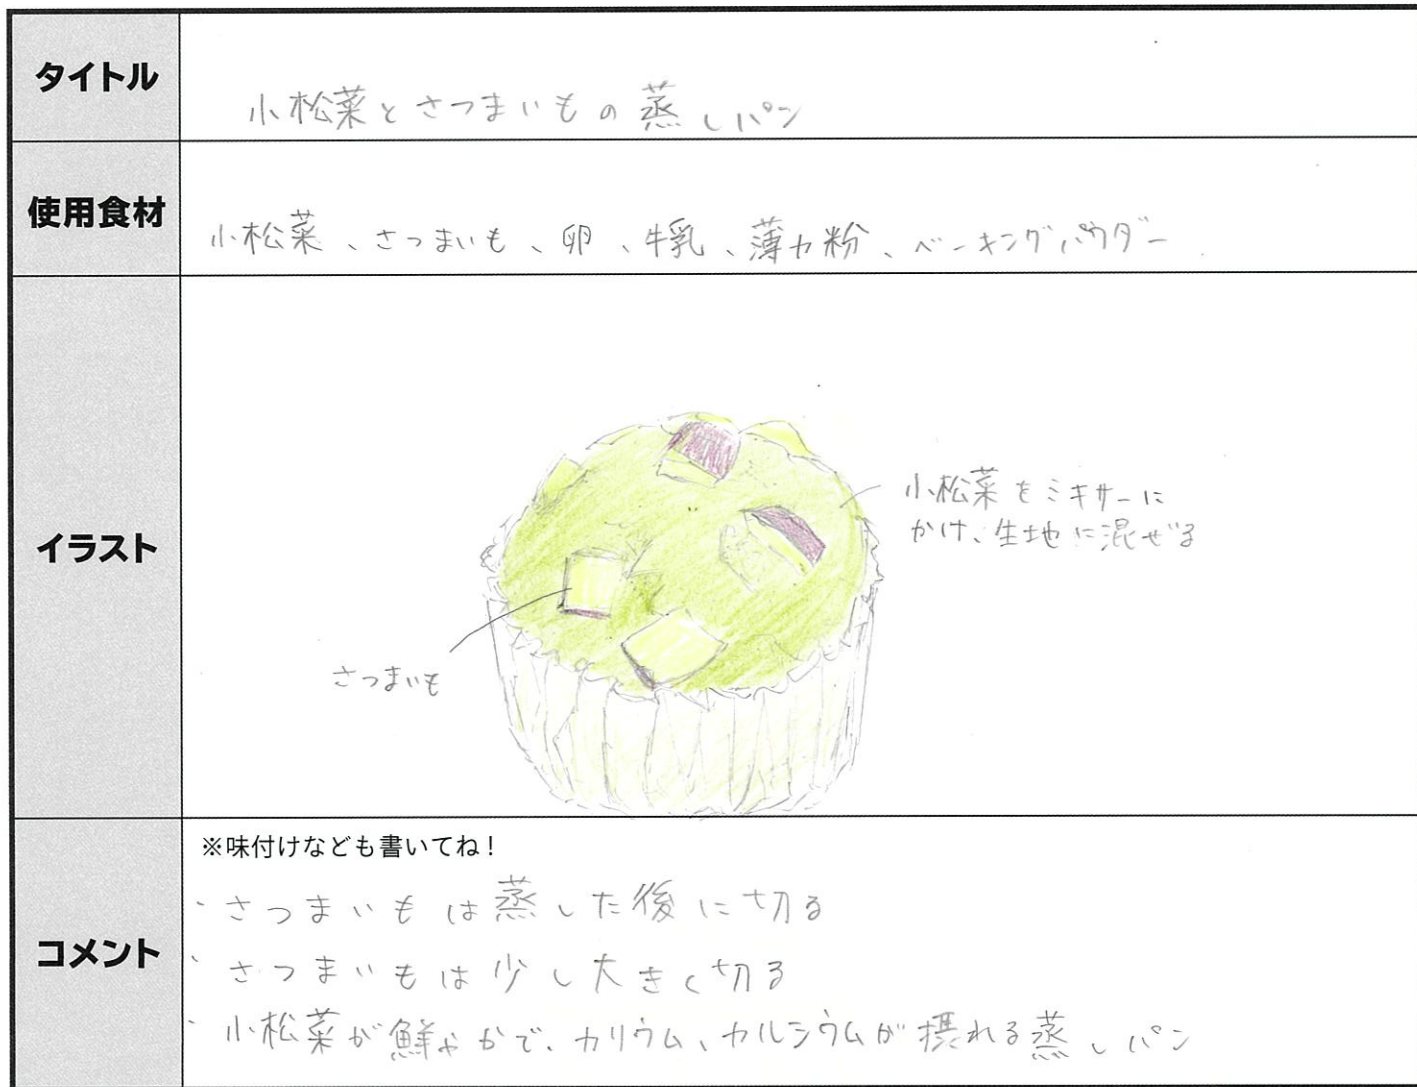 タイトル
小松菜とさつまいもの蒸しパン
使用食材
小松菜、さつまいも、卵、牛乳、薄力粉、ベーキングパウダー
イラスト
小松菜をミキサーに
かけ、生地に混ぜる
さつまいも
コメント
※味付けなども書いてね！
・さつまいもは蒸した後に切る
・さつまいもは少し大きく切る
・小松菜が鮮やかで、カリウム、カルシウムが摂れる蒸しパン